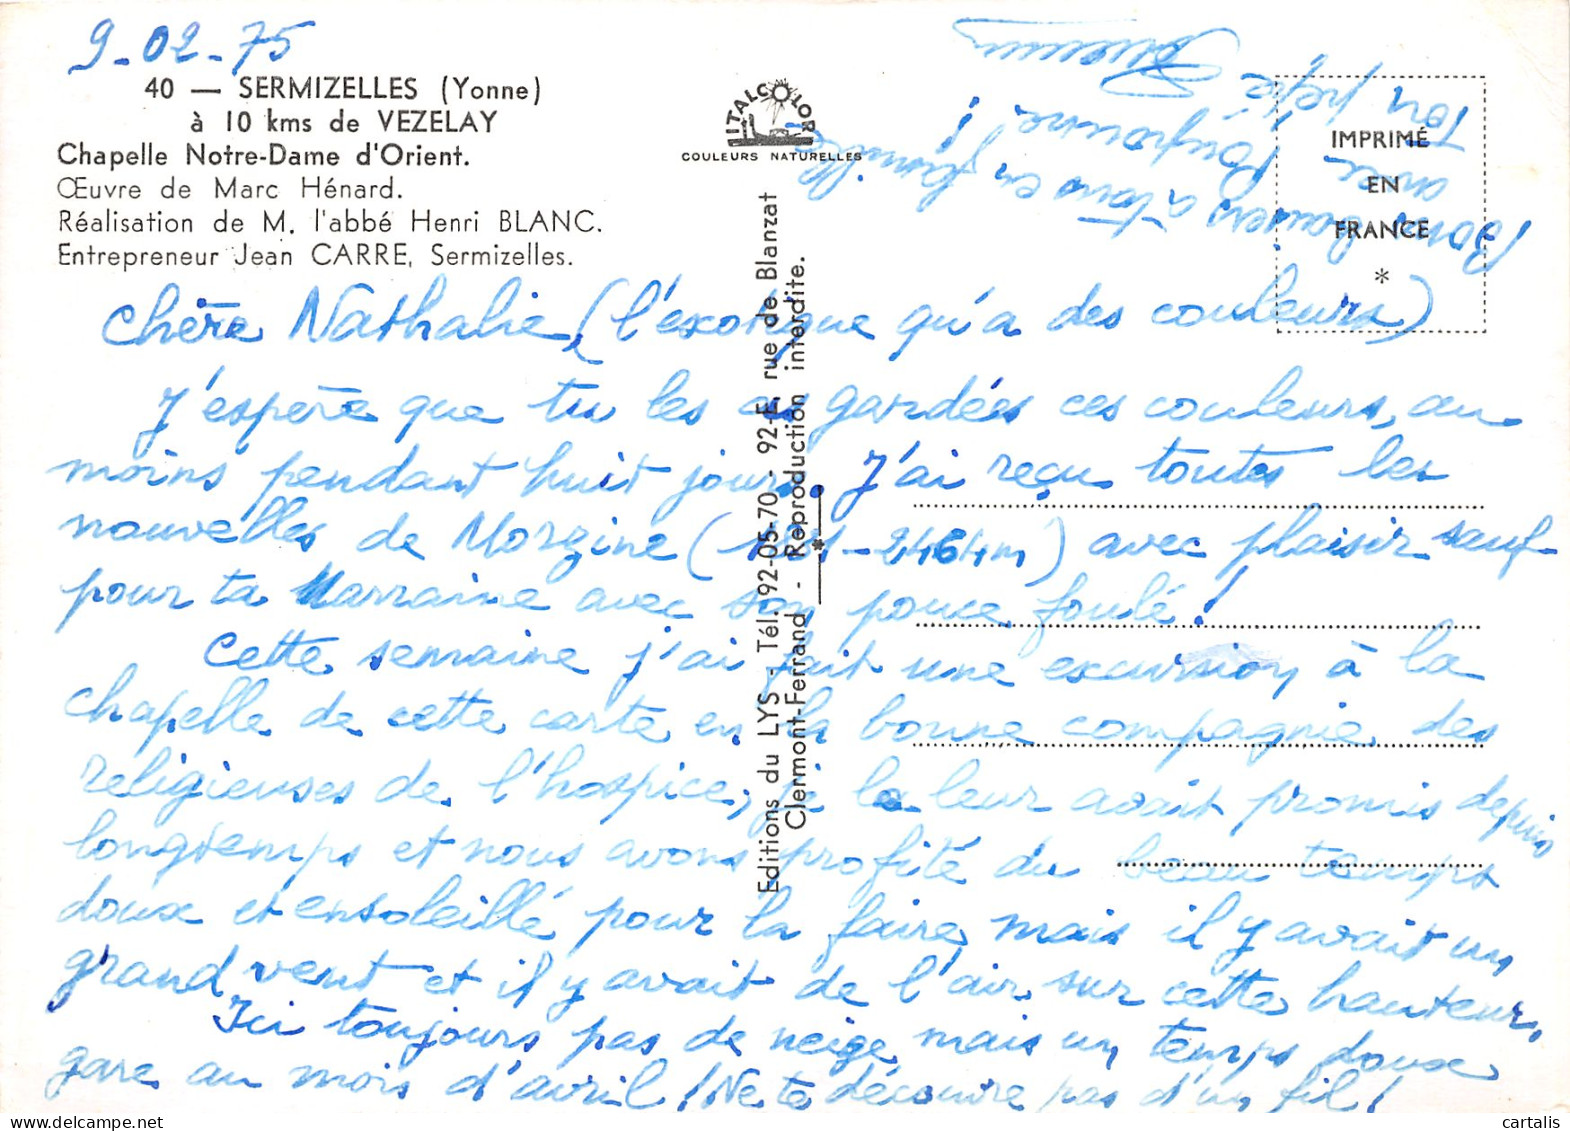 9-02-75
40 — SERMIZELLES (Yonne)
à 10 kms de VEZELAY
Chapelle Notre-Dame d'Orient.
Œuvre de Marc Hénard.
Réalisation de M. l'abbé Henri BLANC.
Entrepreneur Jean CARRE, Sermizelles.
ITALCOLOR
COULEURS NATURELLES
IMPRIMÉ
EN
FRANCE
*
Chère Nathalie, (l'exotique qu'a des couleurs)
J'espère que tu les as gardées ces couleurs, au
moins pendant huit jours. J'ai reçu toutes les
nouvelles de Morzine ( - 2464m) avec plaisir sauf
pour ta Marraine avec son pouce foulé !
Cette semaine j'ai fait une excursion à la
chapelle de cette carte en la bonne compagnie des
religieuses de l'hospice, je le leur avait promis depuis
longtemps et nous avons profité du beau temps
doux et ensoleillé pour la faire, mais il y avait un
grand vent et il y avait de l'air sur cette hauteur,
Ici toujours pas de neige, mais un temps doux
gare au mois d'avril ! Ne te découvre pas d'un fil !
Bons baisers à tous en famille
avec Pouponne !
Ton pépé
Editions du LYS - Tél. 92-05-70 - 92-E, rue de Blanzat
Clermont-Ferrand - Reproduction interdite.